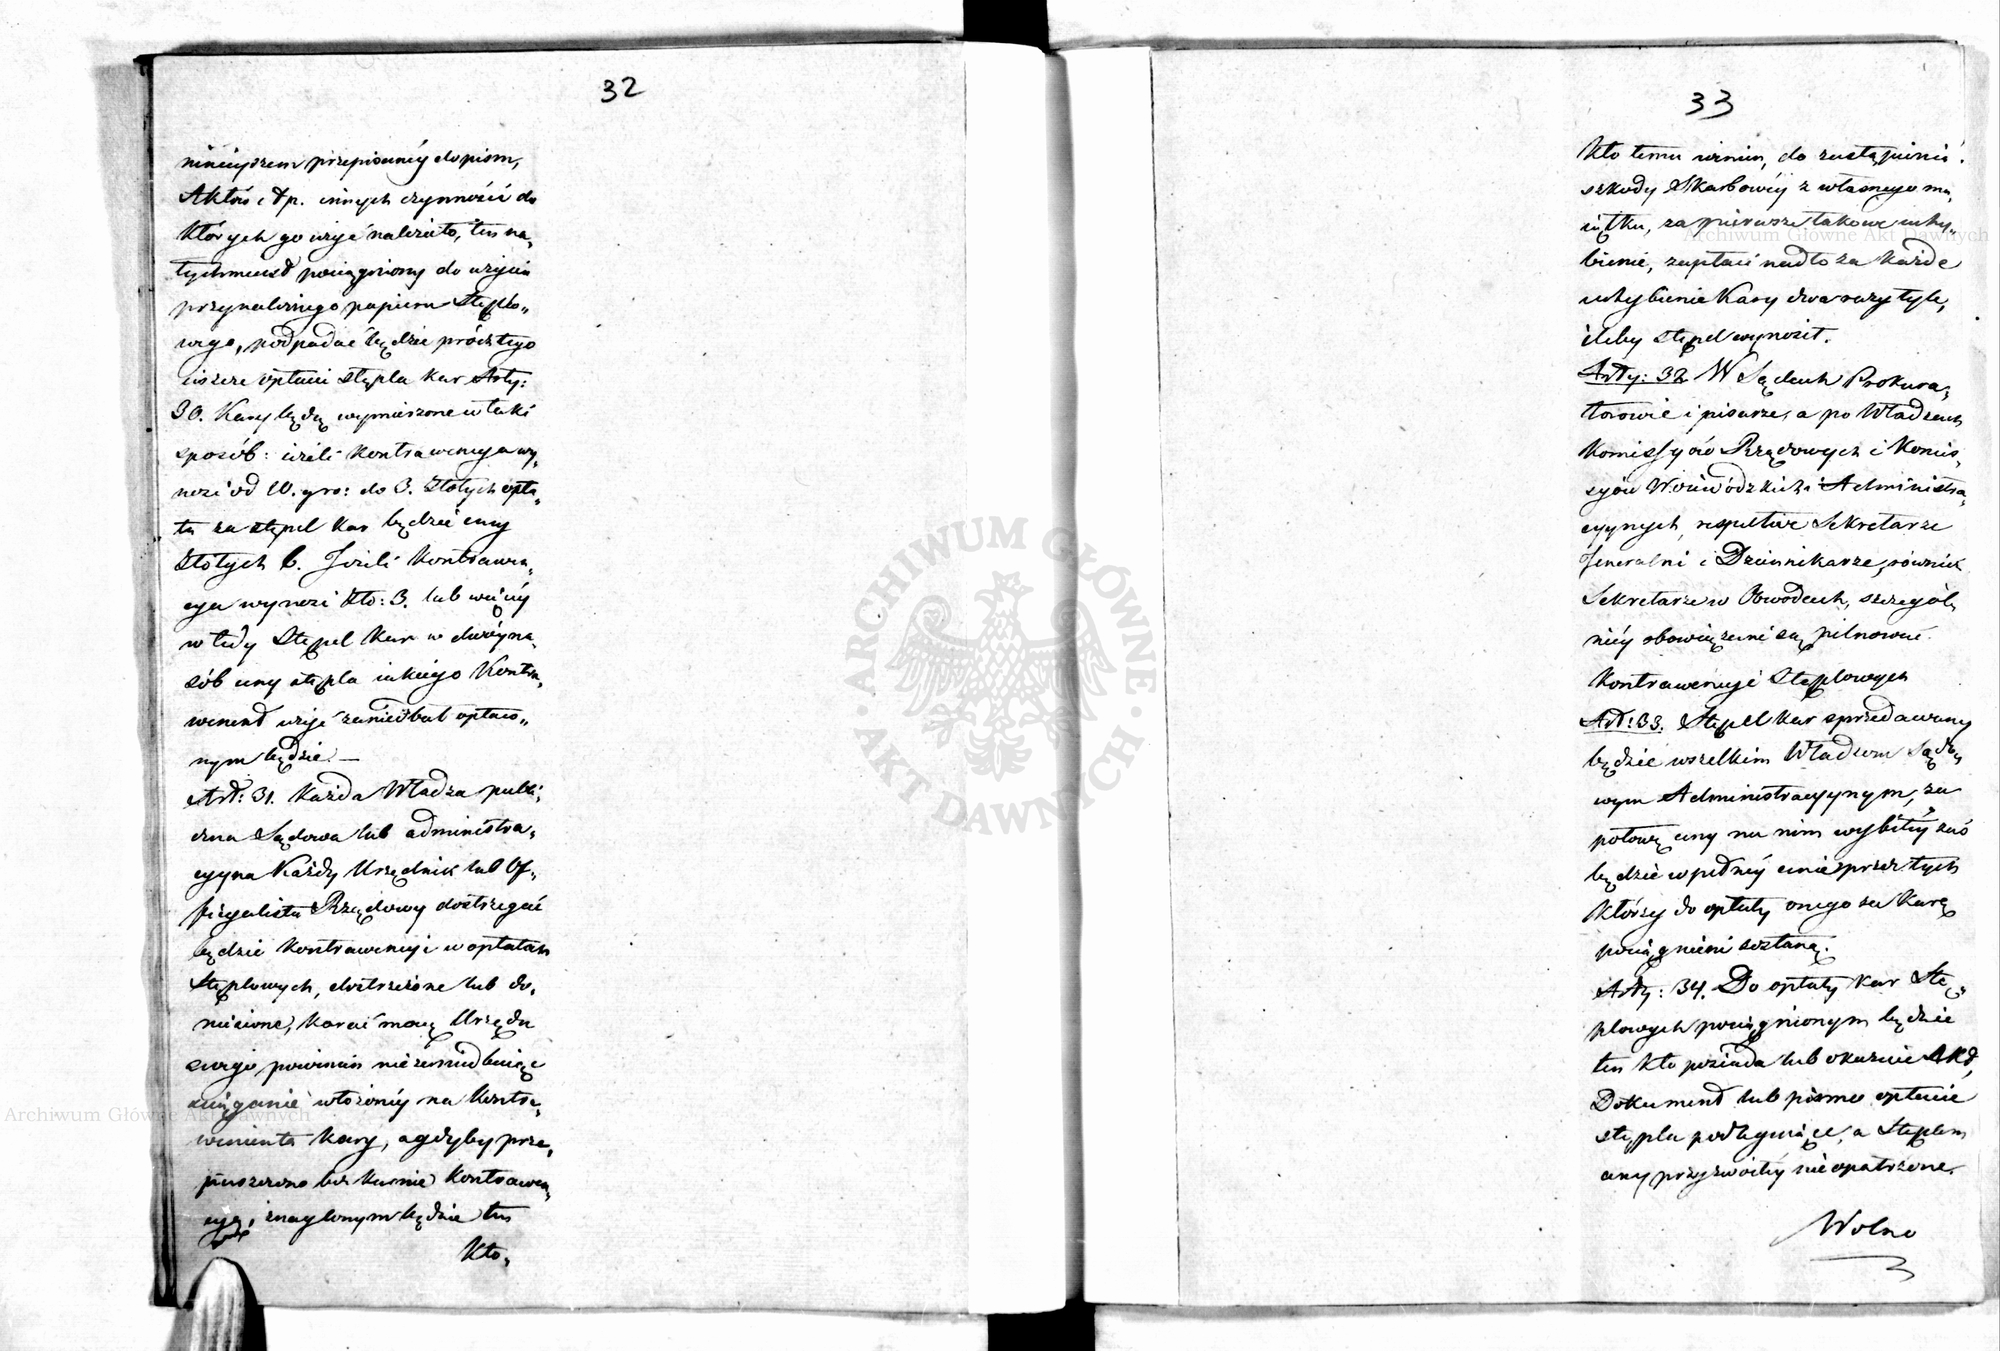 32
ninieyszem przepisaney do pism,
Aktów i t p. innych czynności do
których go użyć należało, ten na„
tychmiast pociągniony do użycia
przynależnego papieru Stęplo„
wego, podpadać będzie prócz tego
ieszcze opłacie stępla kar Arty:
30. Kary będą wymierzone w taki
sposób: ieżeli kontrawencya wy„
nosi od 10. gro: do 3. Złotych opła„
ta za stępel kar będzie ceny
Złotych 6. Jeżeli Kontrawen„
cya wynosi Zło: 3. lub więcey
w tedy Stępel Kar w dwóyna„
sób ceny stępla iakiego Kontra„
wenient użyć zaniedbał opłaco„
nym będzie. —
Art: 31. Każda Władza publi„
czna Sądowa lub administra„
cyyna Każdy Urzędnik lub Of„
ficyalista Rządowy dostrzegać
będzie Kontrawencyi w opłatach
Stęplowych, dostrzeżone lub do„
niesione, karać mocą Urzędu
swego powinien nie zaniedbuiąc
ściąganie włożoney na Kontra„
wenienta Kary, a gdyby prze„
puszczono bez karnie Kontrawen„
cyą, znaglonym będzie ten
Kto„
33
Kto temu winien, do zastąpienia
szkody Skarbowéy z własnego ma„
iątku, za pierwsze takowe uchy„
bienie, zapłaci nadto za każde
uchybienie Kary dwa razy tyle,
ileby stępel wynosił.
Arty: 32 W Sądach Prokura„
torowie i pisarze, a po Władzach
Komissyów Rządowych i Komis„
syów Woiewódzkich i Administra„
cyynych, respective Sekretarze
Jeneralni i Dziennikarze, równieź
Sekretarze w Obwodach, szczegól„
niéy obowiązani są pilnować
Kontrawencyi Stęplowych
Art: 33. Stępel kar sprzedawany
będzie wszelkim Władzom Sądo„
wym Administracyynym, za
połowę ceny na nim wybitéy zaś
będzie w pełnéy cenie przez tych
którzy do opłaty onego za Karę
pociągnieni zostaną.
Arty: 34. Do opłaty kar Stę„
plowych pociągnionym będzie
ten kto posiada lub okazuie Akt,
Dokument lub pismo opłacie
stępla podlegaiące, a Stęplem
ceny przyzwoitéy nieopatrzone.
Wolno
ARCHIWUM GŁÓWNE AKT DAWNYCH
Archiwum Główne Akt Dawnych
Archiwum Główne Akt Dawnych